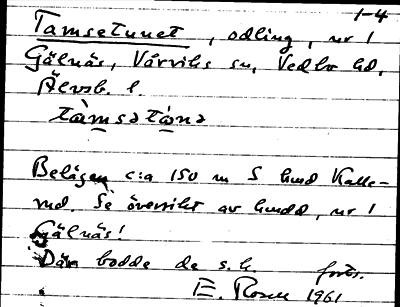 1-4
Tamsetunet, odling, nr 1
Gälnäs, Vårviks sn, Vedbo hd,
Älvsb. l.
tàmsətúnə
Belägen c:a 150 m S hmd Kalle-
rud. Se översikt av hmdd, nr 1
Gälnäs!
Där bodde de s.k. forts.
E. Rosén 1961